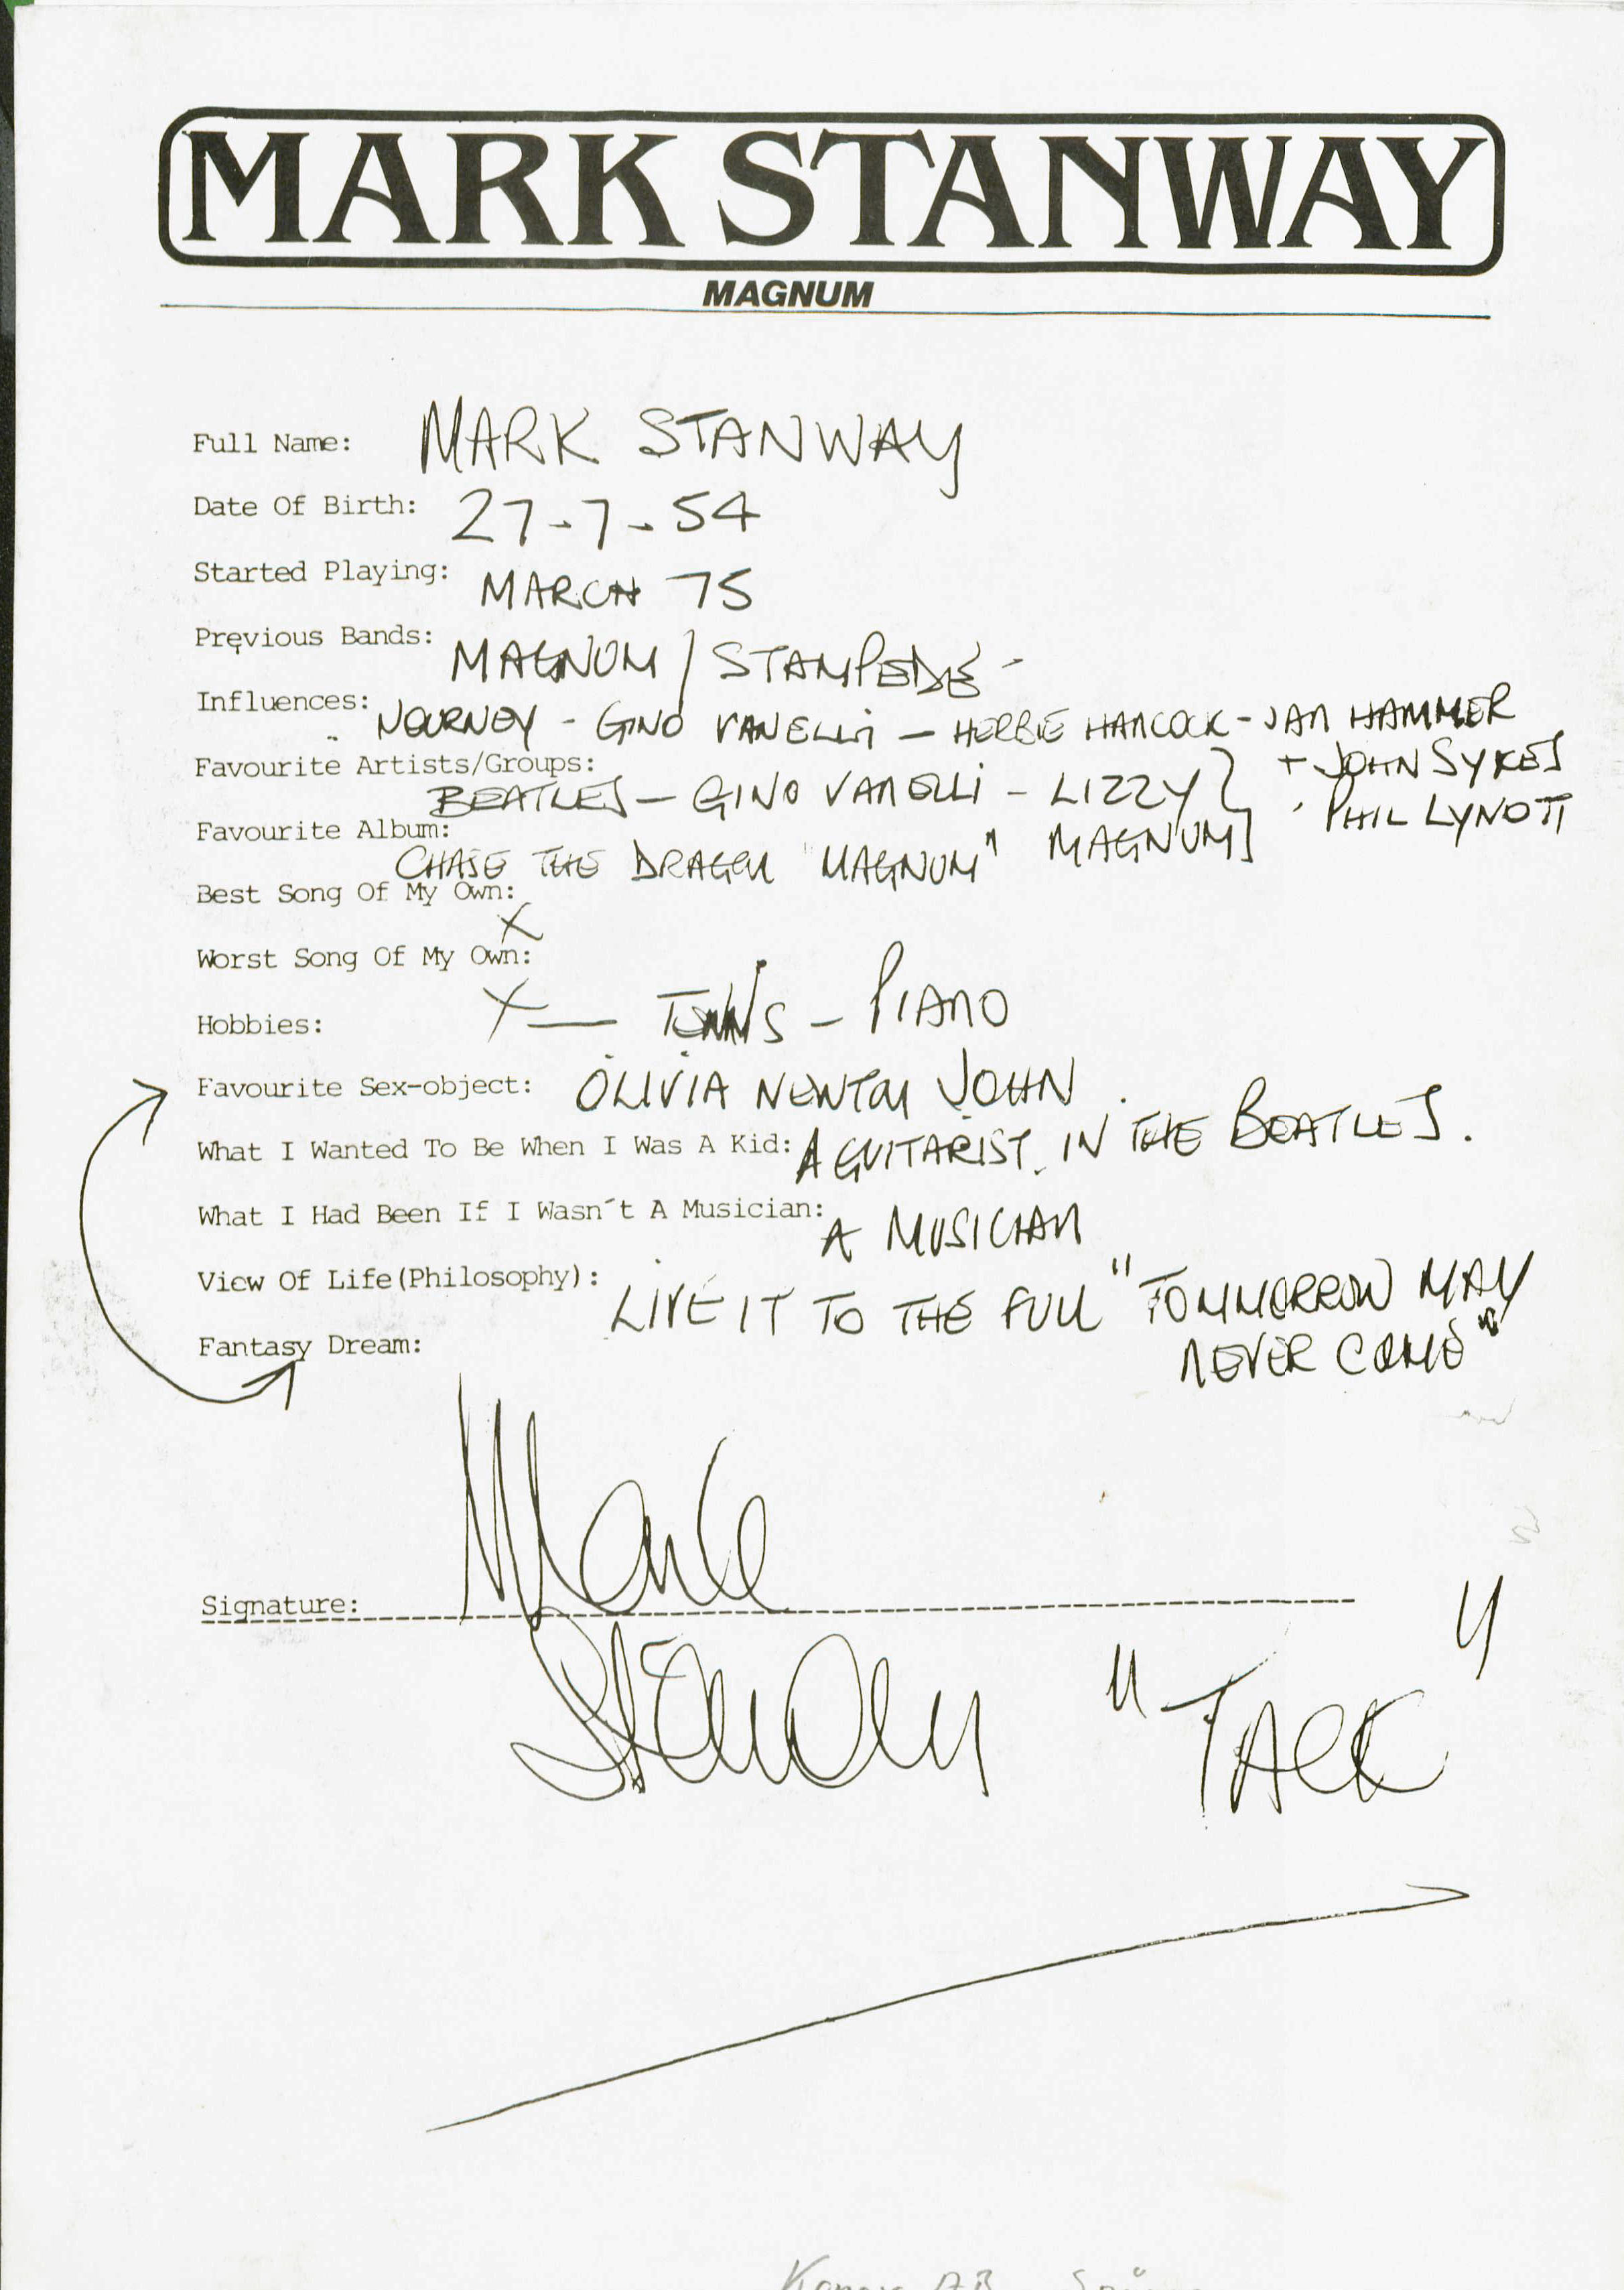 MARK STANWAY
MAGNUM
Full Name: MARK STANWAY
Date Of Birth: 27-7-54
Started Playing: MARCH 75
Previous Bands: MAGNUM / STAMPEDE -
Influences: JOURNEY - GINO VANELLI - HERBIE HANCOCK - JAN HAMMER
Favourite Artists/Groups: + JOHN SYKES
BEATLES - GINO VANELLI - LIZZY } PHIL LYNOTT
Favourite Album: MAGNUM]
CHASE THE DRAGON "MAGNUM"
Best Song Of My Own: X
Worst Song Of My Own: X
Hobbies: — TENNIS - PIANO
Favourite Sex-object: OLIVIA NEWTON JOHN
What I Wanted To Be When I Was A Kid: A GUITARIST. IN THE BEATLES.
What I Had Been If I Wasn´t A Musician: A MUSICIAN
View Of Life(Philosophy): LIVE IT TO THE FULL "TOMMORROW MAY
NEVER COME"
Fantasy Dream:
Signature: Mark
Stanway "TACK"